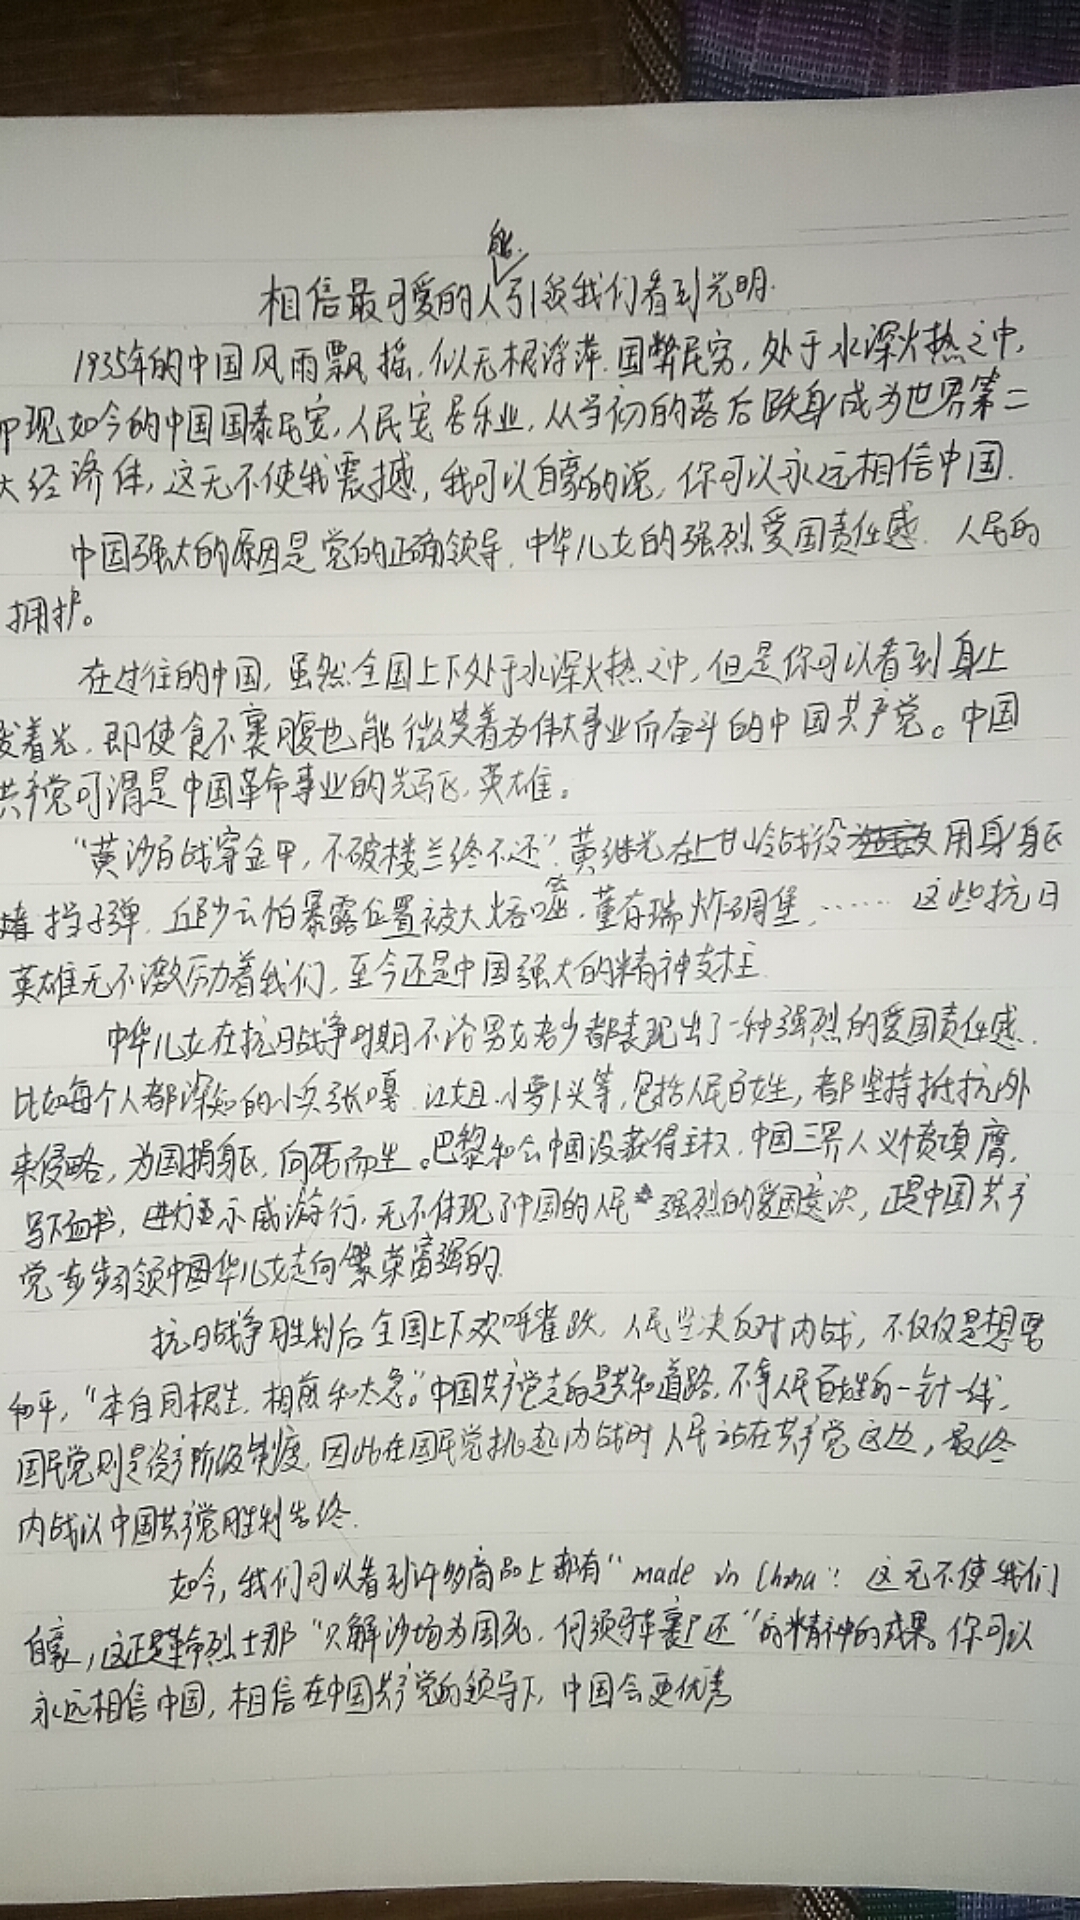 相信最可爱的人能引领我们看到光明.
1935年的中国风雨飘摇,似无根浮萍.国弊民穷,处于水深火热之中,
即现如今的中国国泰民安,人民安居乐业,从当初的落后跃身成为世界第二
大经济体,这无不使我震撼,我可以自豪的说,你可以永远相信中国.
中国强大的原因是党的正确领导.中华儿女的强烈爱国责任感.人民的
拥护。
在过往的中国,虽然全国上下处于水深火热之中,但是你可以看到身上
发着光,即使食不裹腹也能微笑着为伟大事业而奋斗的中国共产党。中国
共产党可谓是中国革命事业的先驱,英雄。
"黄沙百战穿金甲,不破楼兰终不还".黄继光在上甘岭战役用身躯
挡子弹.邱少云怕暴露位置被大火吞噬.董存瑞炸碉堡,……这些抗日
英雄无不激励着我们,至今还是中国强大的精神支柱.
中华儿女在抗日战争时期不论男女老少都表现出了一种强烈的爱国责任感.
比如每个人都深知的小兵张嘎.江姐.小萝卜头等,包括人民百姓,都坚持抵抗外
来侵略,为国捐躯,向死而生。巴黎和会中国没获得主权.中国三界人义愤填膺,
写下血书,进行示威游行,无不体现了中国的人民强烈的爱国意识,正是中国共产
党引领中国华儿女走向繁荣富强的.
抗日战争胜利后全国上下欢呼雀跃.人民坚决反对内战,不仅仅是想要
和平,"本自同根生.相煎和太急。"中国共产党走的是共和道路,不拿人民百姓的一针一线,
国民党则是资产阶级制度.因此在国民党挑起内战时人民站在共产党这边,最终
内战以中国共产党胜利告终.
如今,我们可以看到许多商品上都有"made in China".这无不使我们
自豪,这正是革命烈士那"只解沙场为国死,何须马革裹尸还"的精神的成果。你可以
永远相信中国,相信在中国共产党的领导下,中国会更优秀